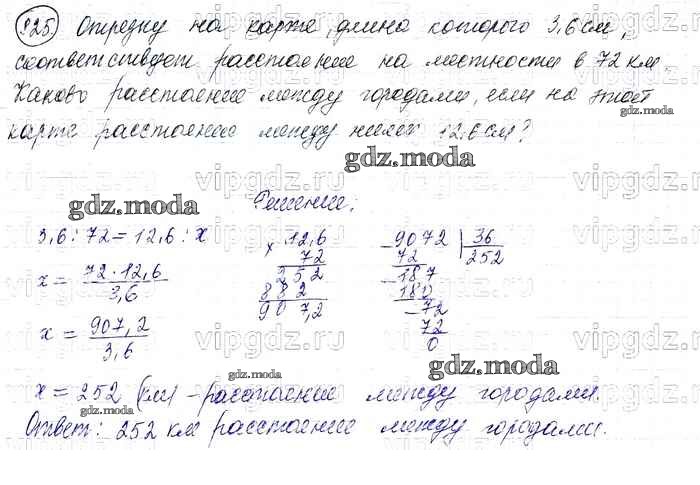 825. Отрезку на карте, длина которого 3,6 см,
соответствует расстояние на местности в 72 км.
Каково расстояние между городами, если на этой
карте расстояние между ними 12,6 см?
gdz.moda
vipgdz.ru
gdz.moda
Решение:
3,6 : 72 = 12,6 : x
x = 72 · 12,6 / 3,6
x = 907,2 / 3,6
x 12,6
72
252
882
907,2
- 9072 | 36
72 252
- 187
180
- 72
72
0
gdz.moda
gdz.moda
x = 252 (км) - расстояние между городами.
gdz.moda
Ответ: 252 км расстояние между городами.